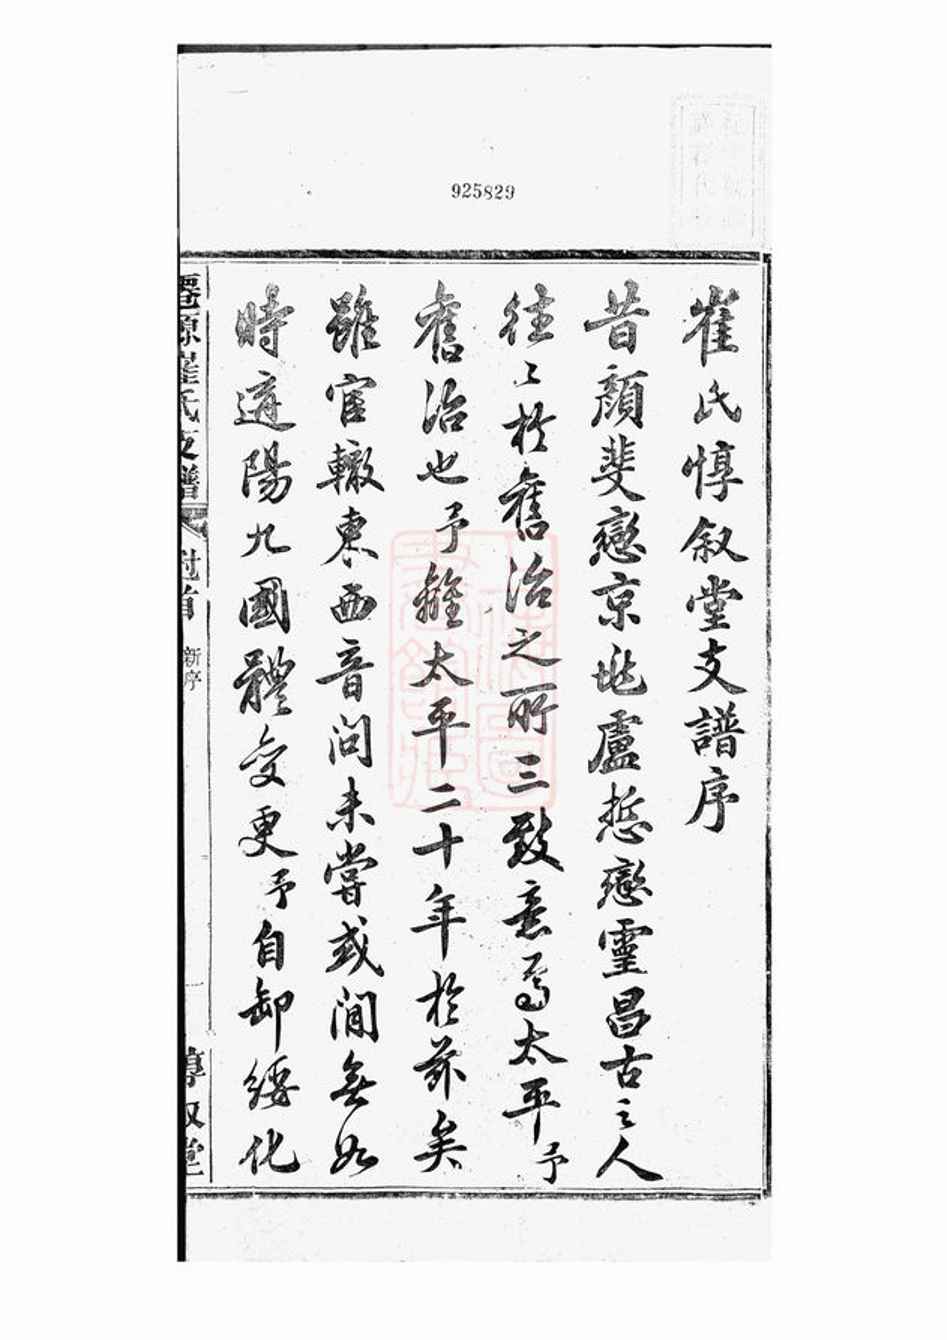 925829
崔氏惇叙堂支譜序
昔顏斐戀京兆盧悊戀靈昌古之人
往〻於舊治之所三致意焉太平予
舊治也予離太平二十年於茲矣
雖官轍東西音問未嘗或間無如
時遊陽九國體變更予自卸綏化
崔氏支譜
卷首
新序
惇叙堂